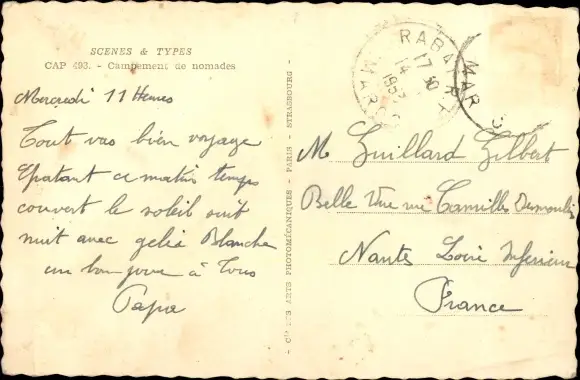 SCENES & TYPES
CAP 493. - Campement de nomades
Mercredi 11 Heures
Tout vas bien voyage
Epatant ce matin temps
couvert le soleil suit
nuit avec gelée Blanche
un bonjour à Tous
Papa
- Cie DES ARTS PHOTOMÉCANIQUES - PARIS - STRASBOURG -
RABAT R.P.
17 30
14
195
MAROC
MAR
M Guillard Gilbert
Belle Vue rue Camilles Desmoulin
Nantes Loire Inferieur
France